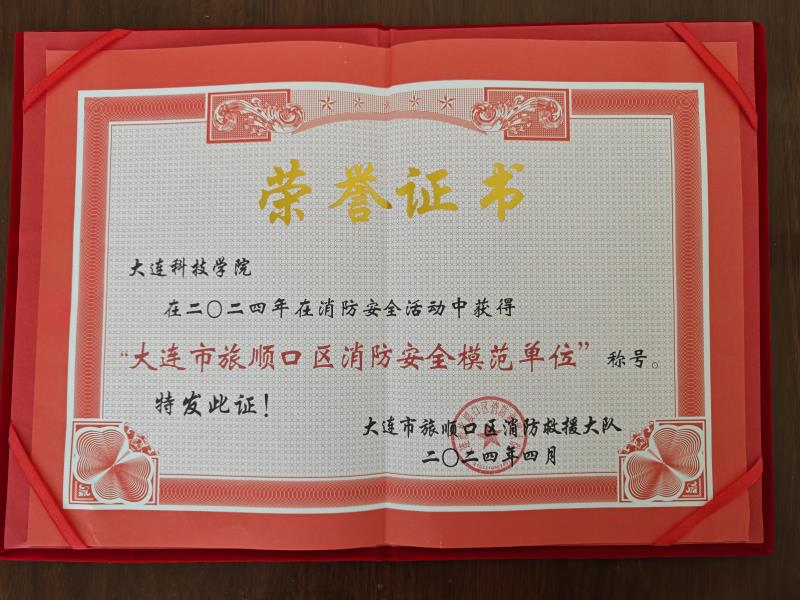 荣誉证书
大连科技学院
在二〇二四年在消防安全活动中获得
“大连市旅顺口区消防安全模范单位”称号。
特发此证！
大连市旅顺口区消防救援大队
二〇二四年四月